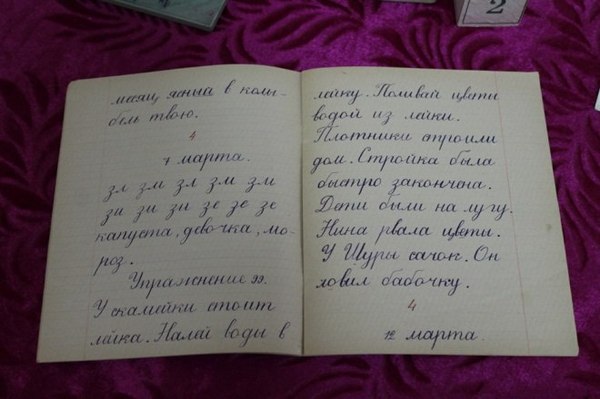 месяц ясный в колы-
бель твою.
4
7 марта.
зл зм зл зм зм
зи зи зи зе зе зе
капуста, девочка, мо-
роз.
Упражнение 99.
У скамейки стоит
лейка. Налей воды в
лейку. Поливай цветы
водой из лейки.
Плотники строили
дом. Стройка была
быстро закончена.
Дети были на лугу.
Нина рвала цветы.
У Шуры сачок. Он
ловил бабочку.
4
12 марта.
2